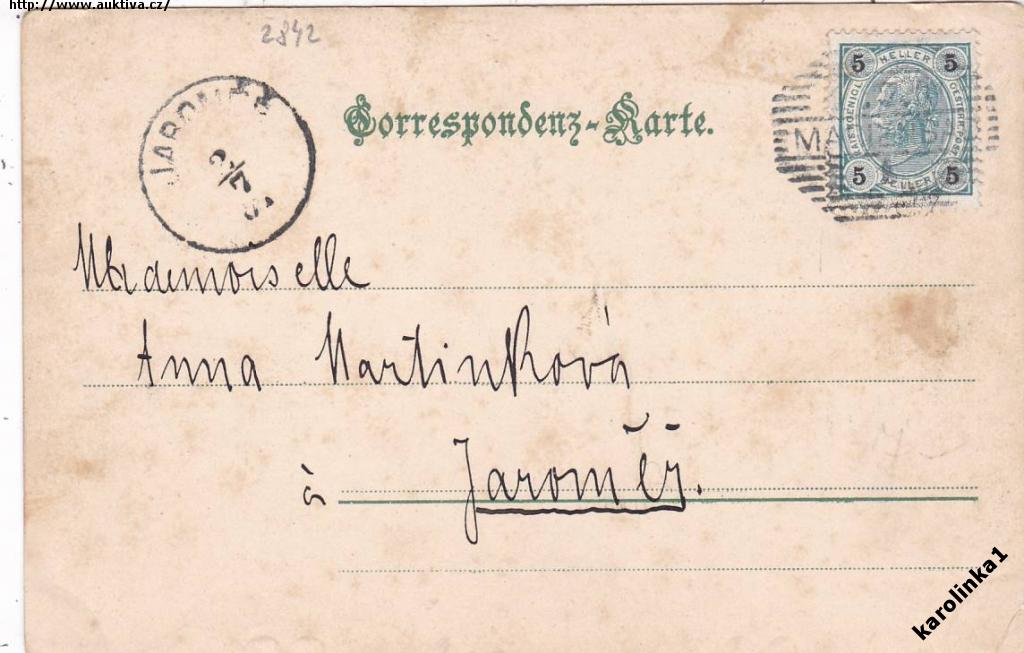 http://www.auktiva.cz/
2842
Correspondenz-Karte.
5 HELLER 5
5 HELLER 5
JAROM
2/7
Mademoiselle
Anna Martinková
à Jaroměř.
karolinka1